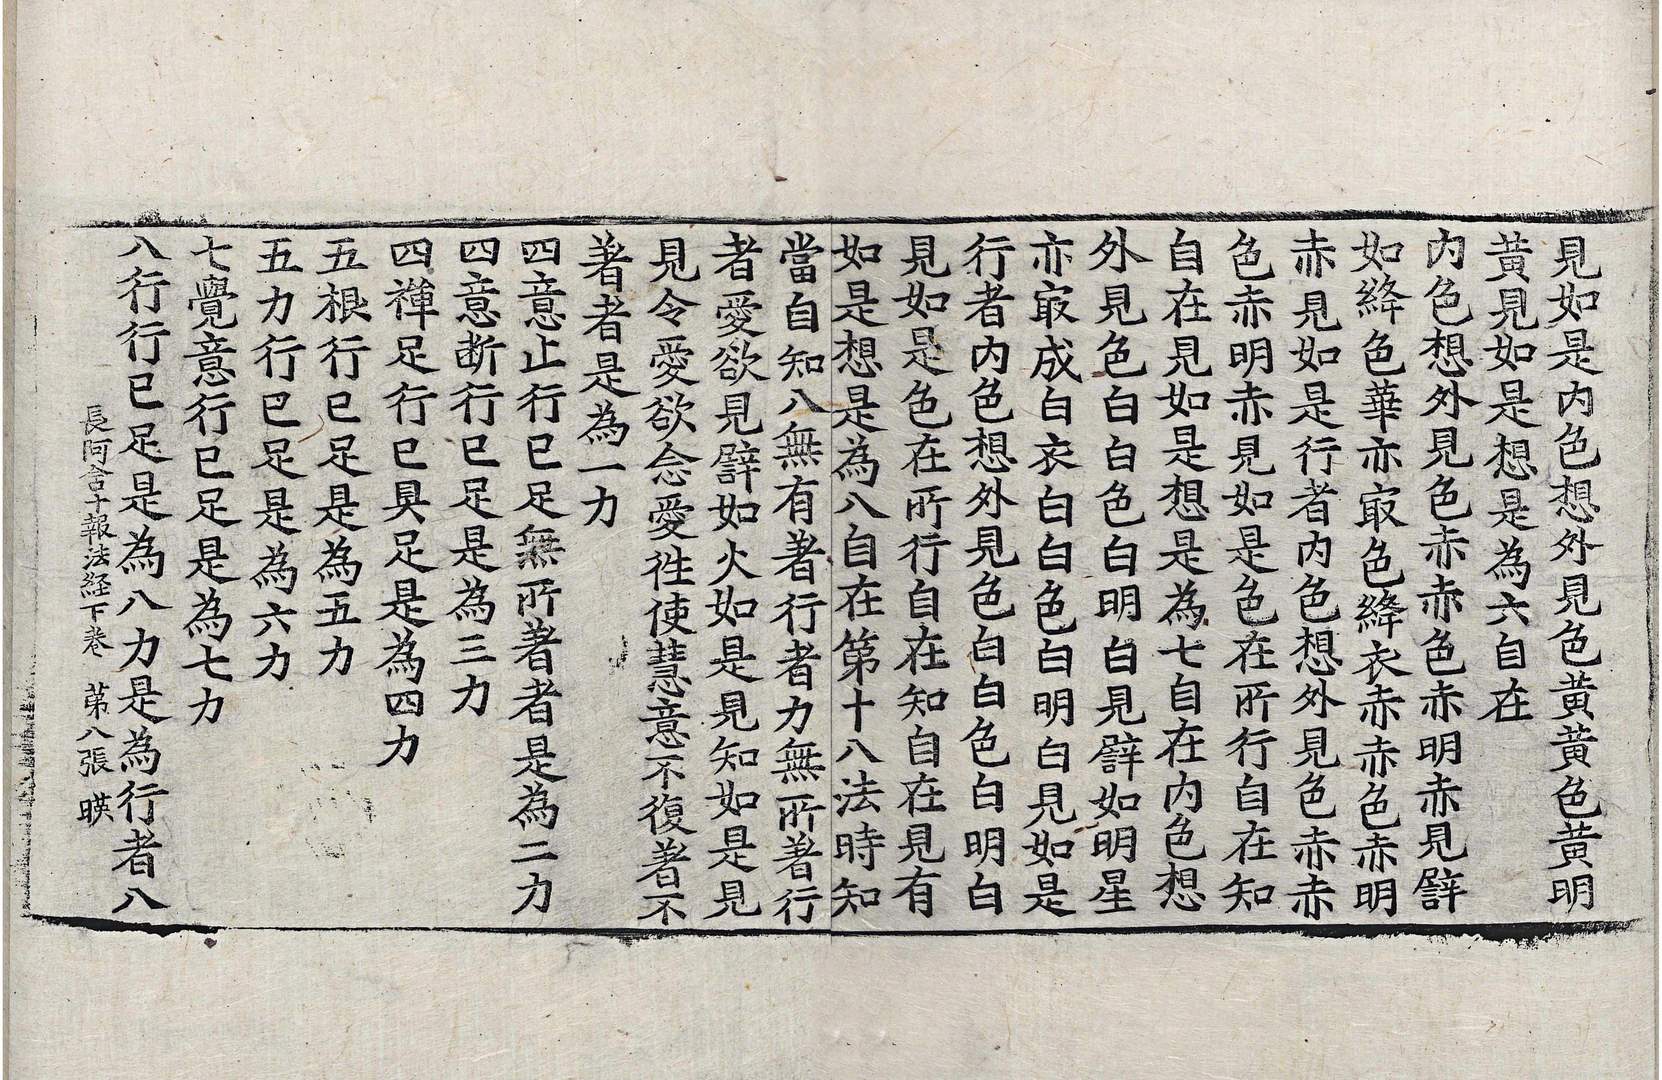 見如是内色想外見色黃黃色黃明
黃見如是想是為六自在
内色想外見色赤赤色赤明赤見譬
如絳色華亦㝡色絳衣赤赤色赤明
赤見如是行者内色想外見色赤赤
色赤明赤見如是色在所行自在知
自在見如是想是為七自在内色想
外見色白白色白明白見譬如明星
亦㝡成白衣白白色白明白見如是
行者内色想外見色白白色白明白
見如是色在所行自在知自在見有
如是想是為八自在第十八法時知
當自知八無有著行者力無所著行
者愛欲見譬如火如是見知如是見
見令愛欲念愛徃使慧意不復著不
著者是為一力
四意止行已足無所著者是為二力
四意断行已足是為三力
四禪足行已具足是為四力
五根行已足是為五力
五力行已足是為六力
七覺意行已足是為七力
八行行已足是為八力是為行者八
長阿含十報法経下卷 苐八張 暎